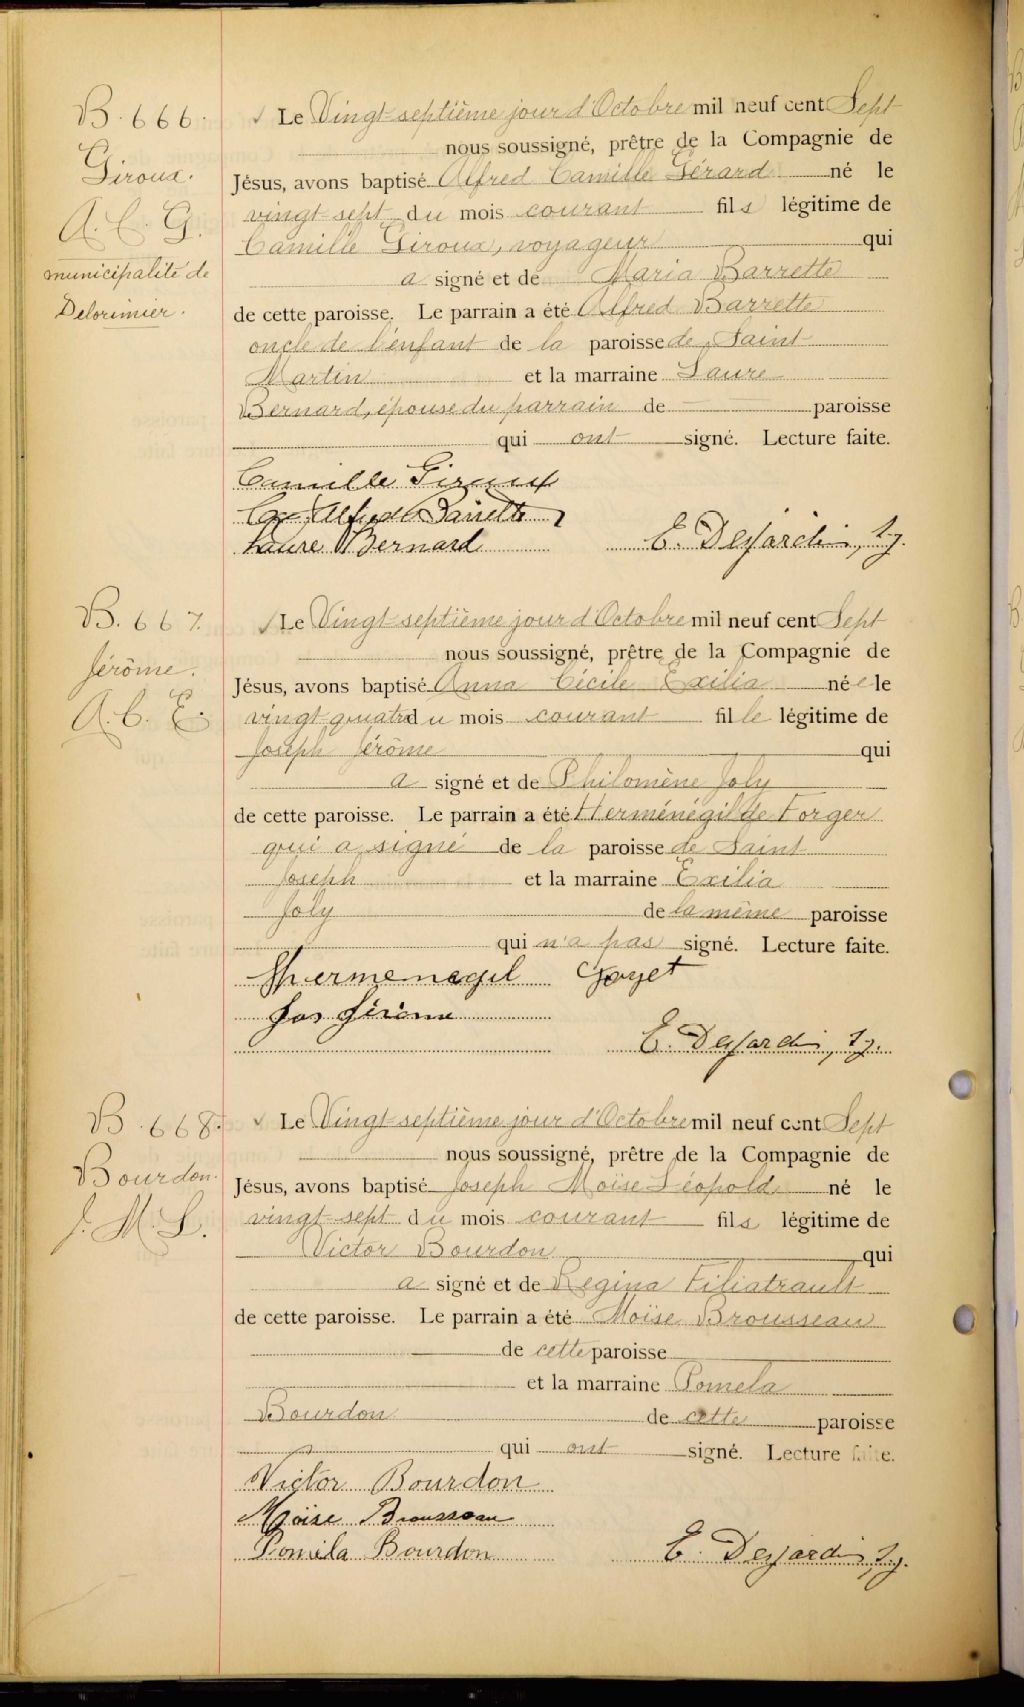 B. 666.
Giroux.
A. C. G.
municipalité de
Delorimier.
√ Le Vingt-septième jour d'Octobre mil neuf cent Sept
nous soussigné, prêtre de la Compagnie de
Jésus, avons baptisé Alfred Camille Gérard né le
vingt-sept du mois courant fils légitime de
Camille Giroux, voyageur qui
a signé et de Maria Barrette
de cette paroisse. Le parrain a été Alfred Barrette
oncle de l'enfant de la paroisse de Saint
Martin et la marraine Laure
Bernard, épouse du parrain de — paroisse
qui ont signé. Lecture faite.
Camille Giroux
Alfred Barrette
Laure Bernard E. Desjardins, s.j.
B. 667.
Jérôme.
A. C. E.
√ Le Vingt-septième jour d'Octobre mil neuf cent Sept
nous soussigné, prêtre de la Compagnie de
Jésus, avons baptisé Anna Cécile Exilia née le
vingt quatre du mois courant fille légitime de
Joseph Jérôme qui
a signé et de Philomène Joly
de cette paroisse. Le parrain a été Herménégilde Forger
qui a signé de la paroisse de Saint
Joseph et la marraine Exilia
Joly de la même paroisse
qui n'a pas signé. Lecture faite.
Hermenegil
Jos Jérome
E. Desjardins, s.j.
B. 668.
Bourdon.
J. M. L.
√ Le Vingt-septième jour d'Octobre mil neuf cent Sept
nous soussigné, prêtre de la Compagnie de
Jésus, avons baptisé Joseph Moïse Léopold né le
vingt-sept du mois courant fils légitime de
Victor Bourdon qui
a signé et de Regina Filiatrault
de cette paroisse. Le parrain a été Moïse Brousseau
de cette paroisse
et la marraine Pomela
Bourdon de cette paroisse
qui ont signé. Lecture faite.
Victor Bourdon
Moïse Brousseau
Pomela Bourdon E. Desjardins, s.j.